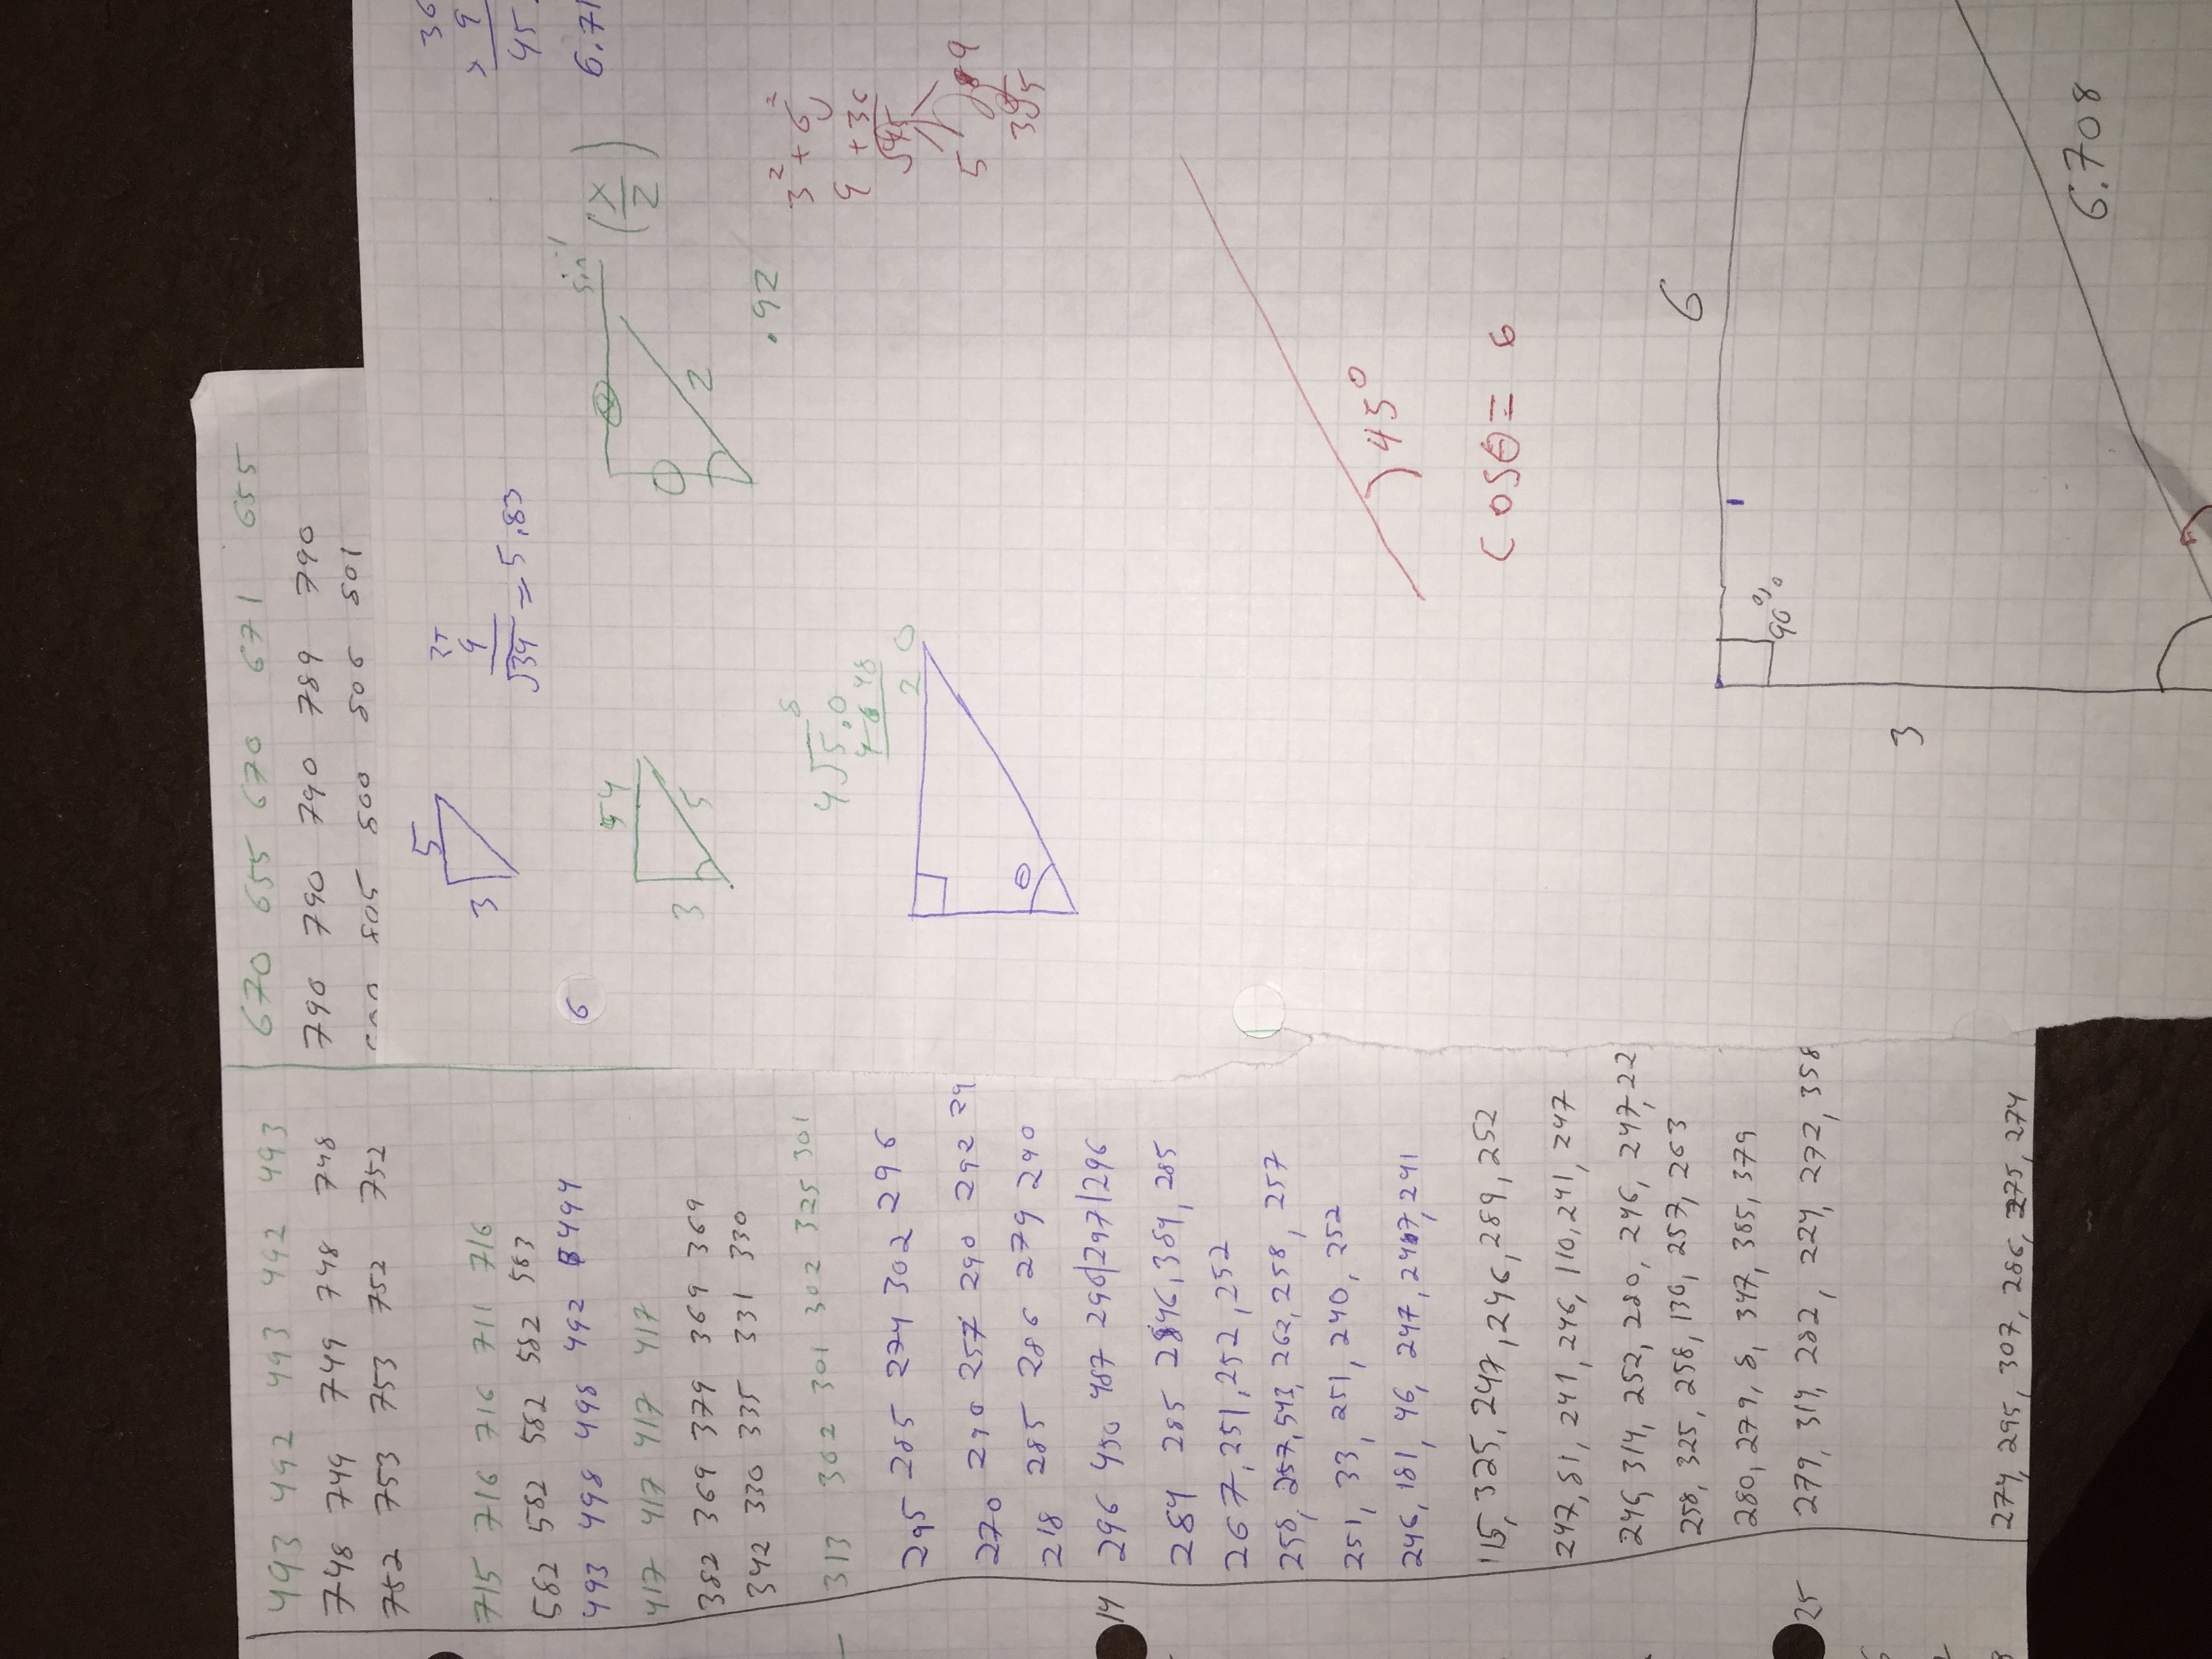 493 492 493 492 493
748 749 749 748 748
752 753 753 752 752
715 716 716 711 716
582 582 582 582 583
493 498 498 492 494
417 417 417 417
382 369 379 369 369
342 330 335 331 330
313 302 301 302 325 301
295 285 274 302 296
270 290 257 290 292 29
218 285 286 279 290
14 296 450 487 296|297|296
284 285 2846, 384, 285
267, 251, 252, 252
258, 257, 543, 262, 258, 257
251, 33, 251, 240, 252
246, 181, 46, 247, 247, 241
115, 325, 247, 246, 289, 252
247, 81, 241, 246, 110, 241, 247
246, 314, 252, 280, 246, 247, 22
258, 325, 258, 130, 257, 263
280, 279, 8, 347, 385, 379
25 279, 314, 282, 224, 272, 358
274, 295, 307, 286, 275, 274
670 655 670 671 655
790 790 790 789 790
805 800 806 801
5
3
9
√34 = 5.83
36
9
45
6.71
6
54
3
5
sin⁻¹ (x/2)
0
2
.92
8
4√5.0
48
20
θ
3² + 6²
9 + 36
√45
5 9
3√5
45°
cosθ = 6
6
90°
3
6.708